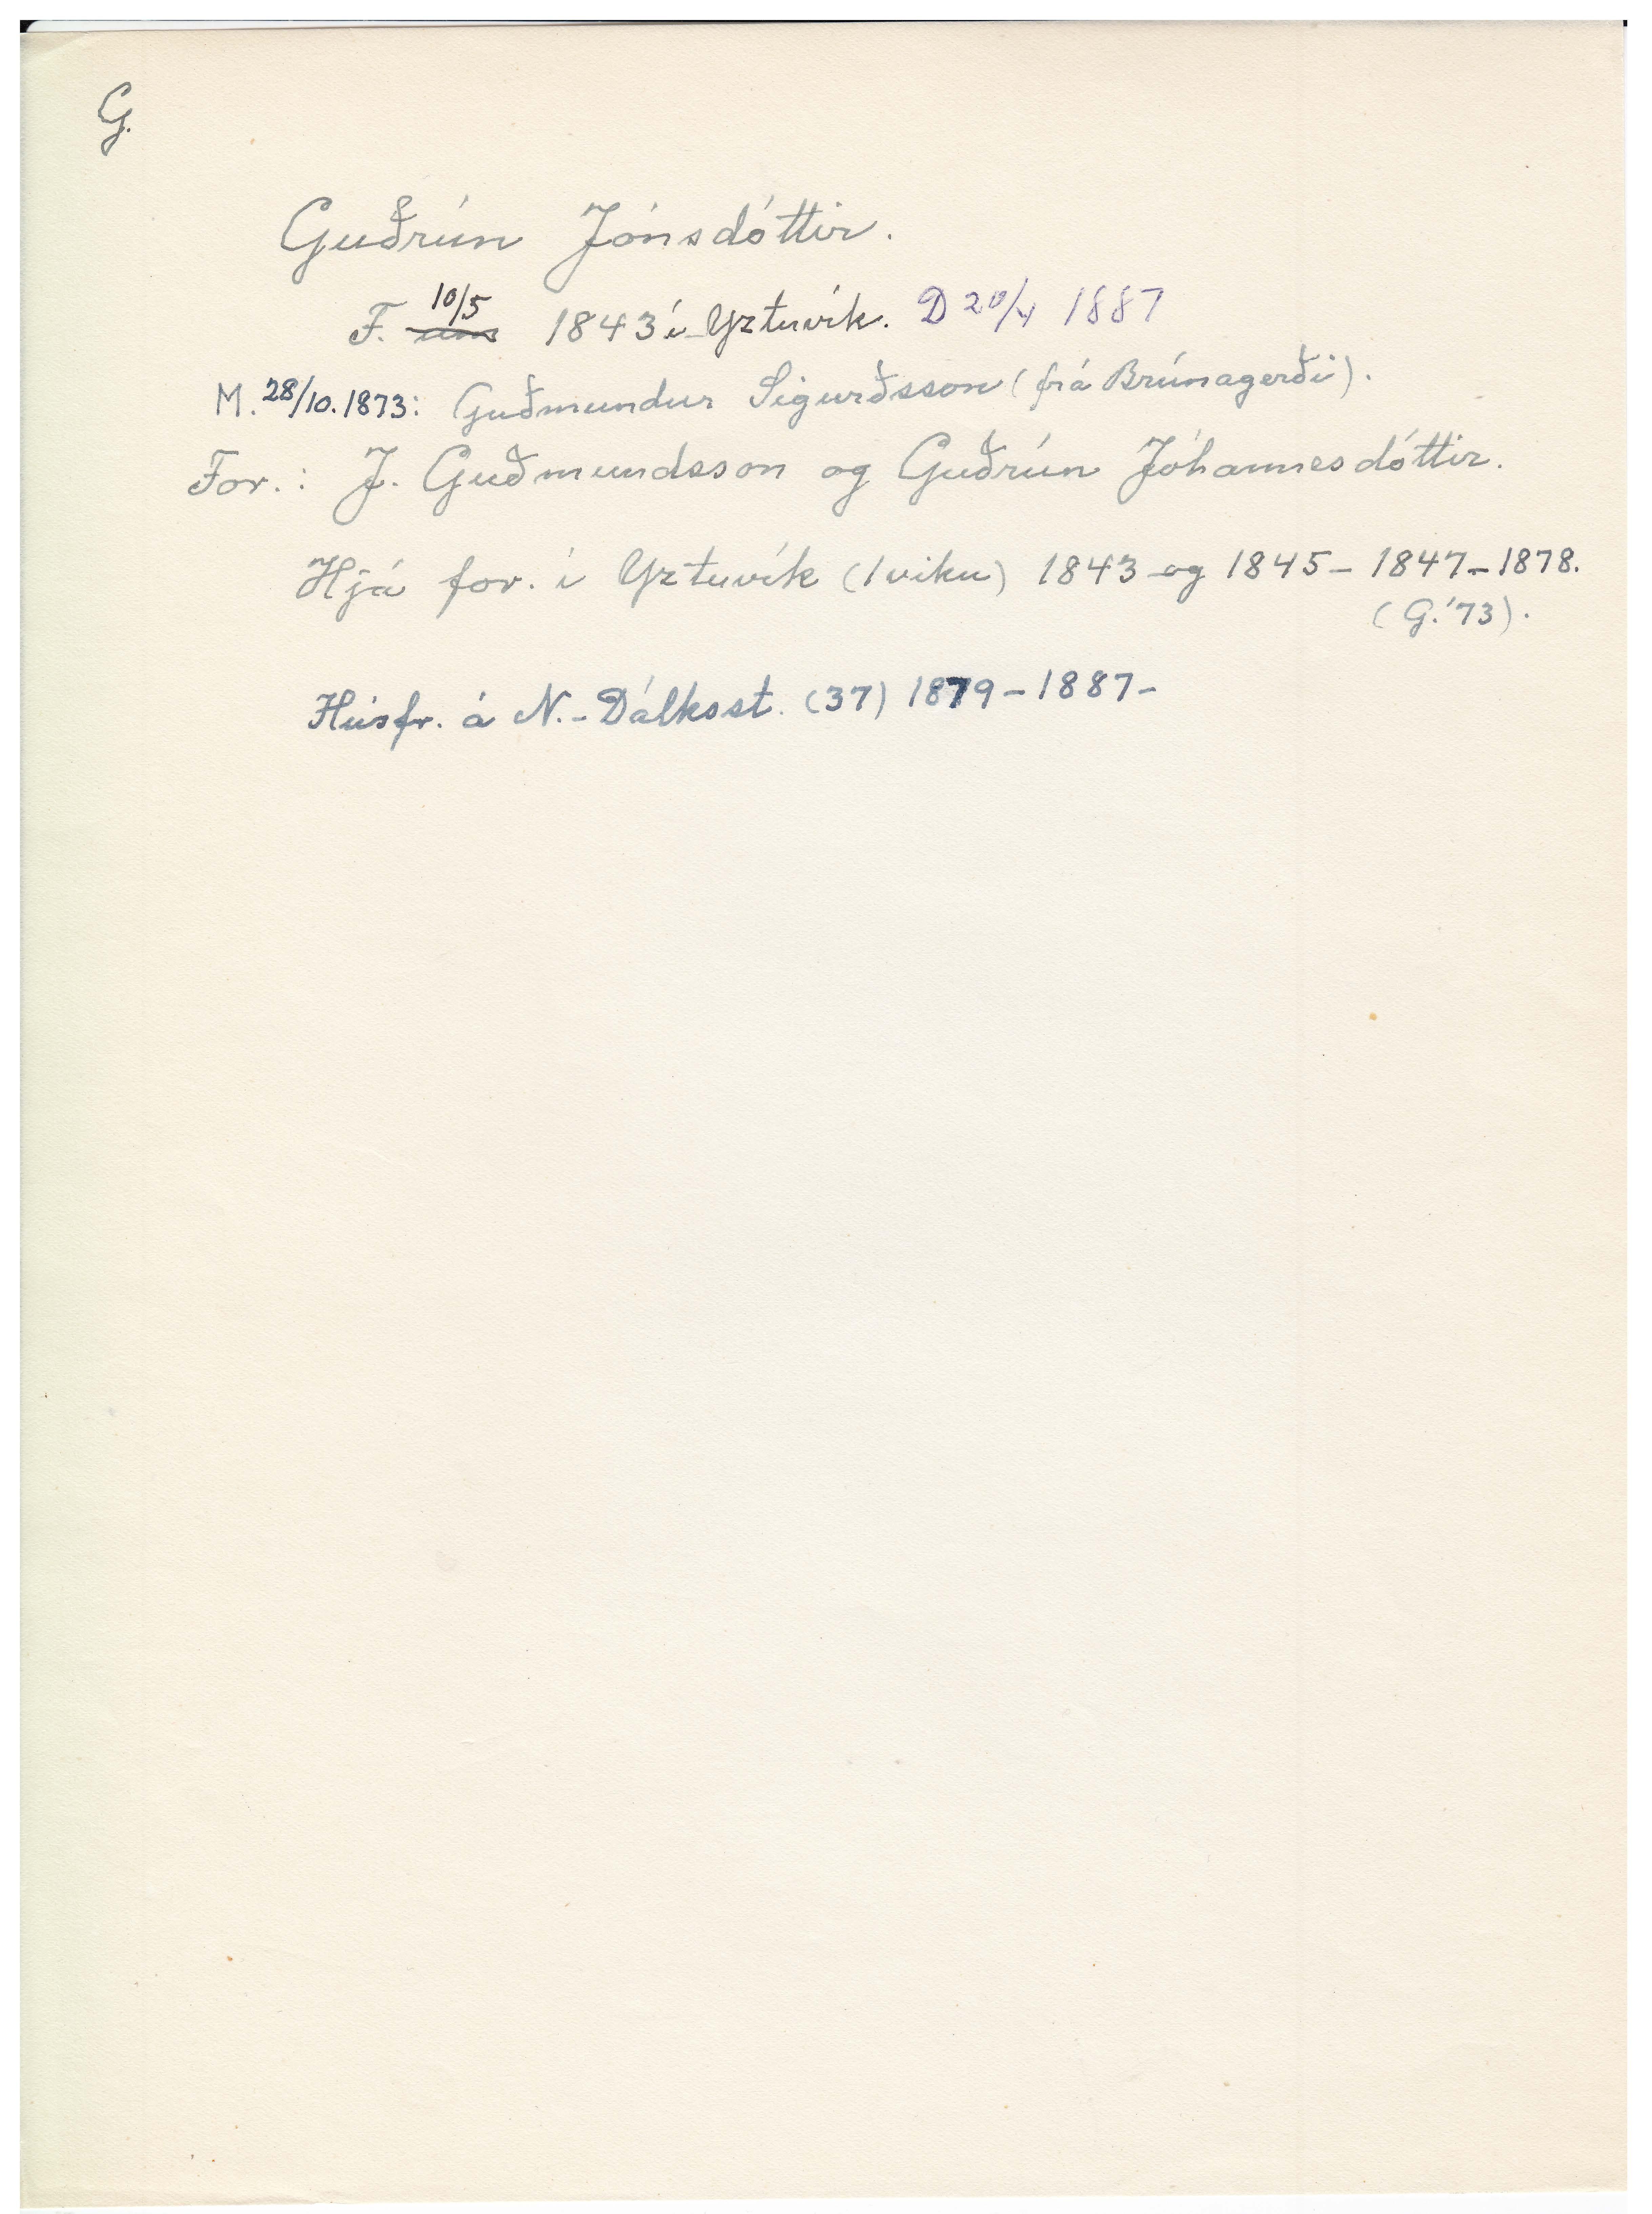 G.
Guðrún Jónsdóttir.
10/5
F. um 1843 í Yztuvík. D 20/4 1887
M. 28/10. 1873: Guðmundur Sigurðsson (frá Brúnagerði).
For.: J. Guðmundsson og Guðrún Jóhannesdóttir.
Hjá for. í Yztuvík (1 viku) 1843 og 1845 - 1847 - 1878.
(G. '73).
Húsfr. á N.- Dálksst. (37) 1879 - 1887 -